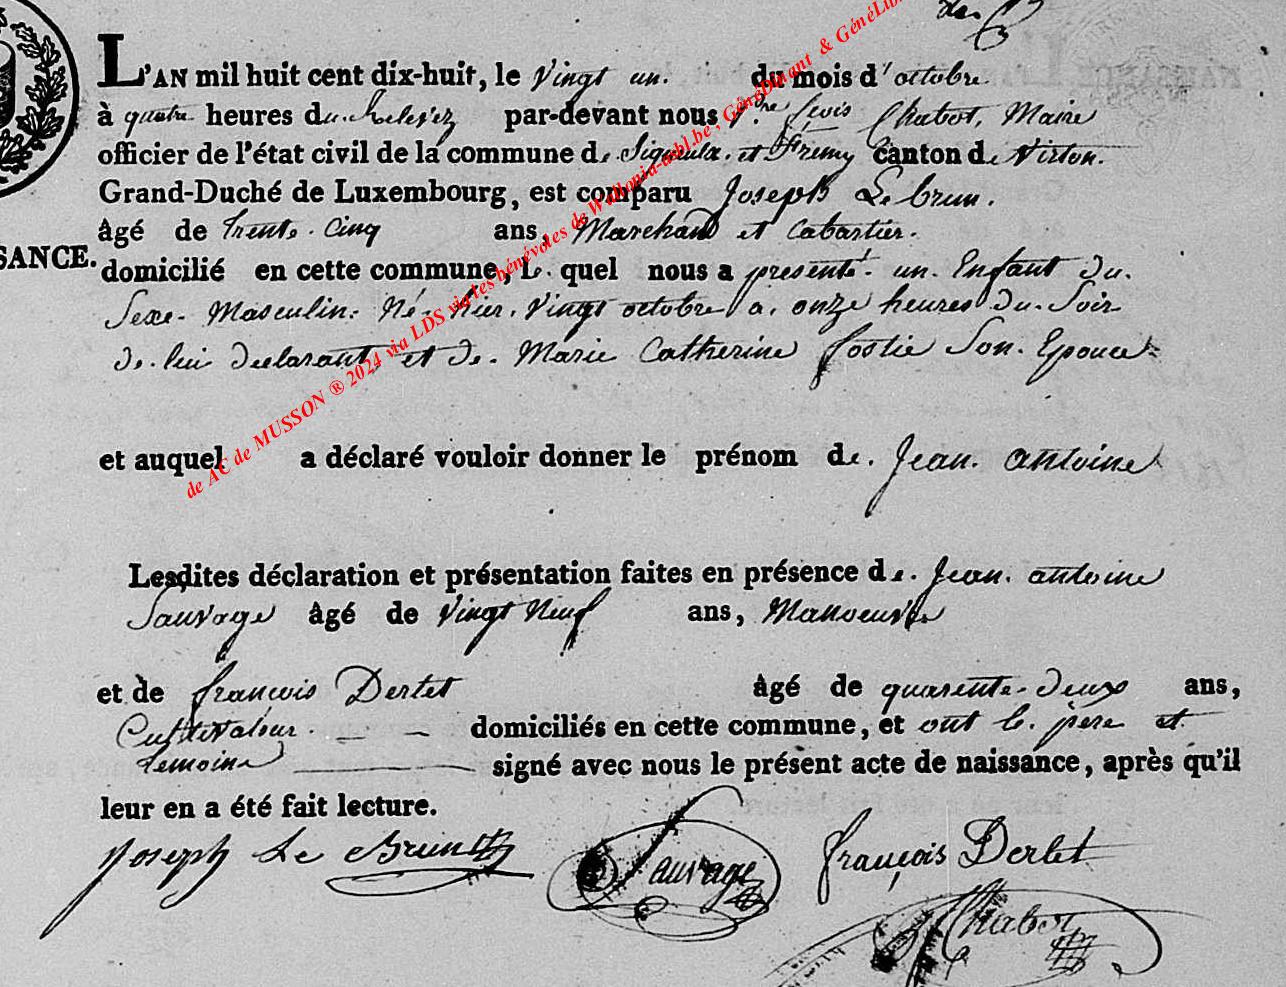 L'AN mil huit cent dix-huit, le Vingt un. du mois d'octobre
à quatre heures du relevez par-devant nous Chabot, Maire
officier de l'état civil de la commune de Signeulx et canton de Virton.
Grand-Duché de Luxembourg, est comparu Joseph Le brun.
âgé de trente-Cinq ans, Marchand et Cabartier.
SANCE.
domicilié en cette commune, Le quel nous a présenté un Enfant du.
Sexe Masculin Né hier, Vingt octobre a onze heures du Soir
de lui declarant et de Marie Catherine Son Epouce
et auquel a déclaré vouloir donner le prénom de Jean antoine
Lesdites déclaration et présentation faites en présence de Jean antoine
Sauvage âgé de Vingt Neuf ans, Manoeuvre
et de françois Dertet âgé de quarente-deux ans,
Cultivateur domiciliés en cette commune, et ont le père et
temoins signé avec nous le présent acte de naissance, après qu'il
leur en a été fait lecture.
Joseph Le Brun Sauvage françois Dertet
Chabot
de AC de MUSSON ® 2024 via LDS via les bénévoles de Wallonia-asbl.be, GénéDinant & GénéLib